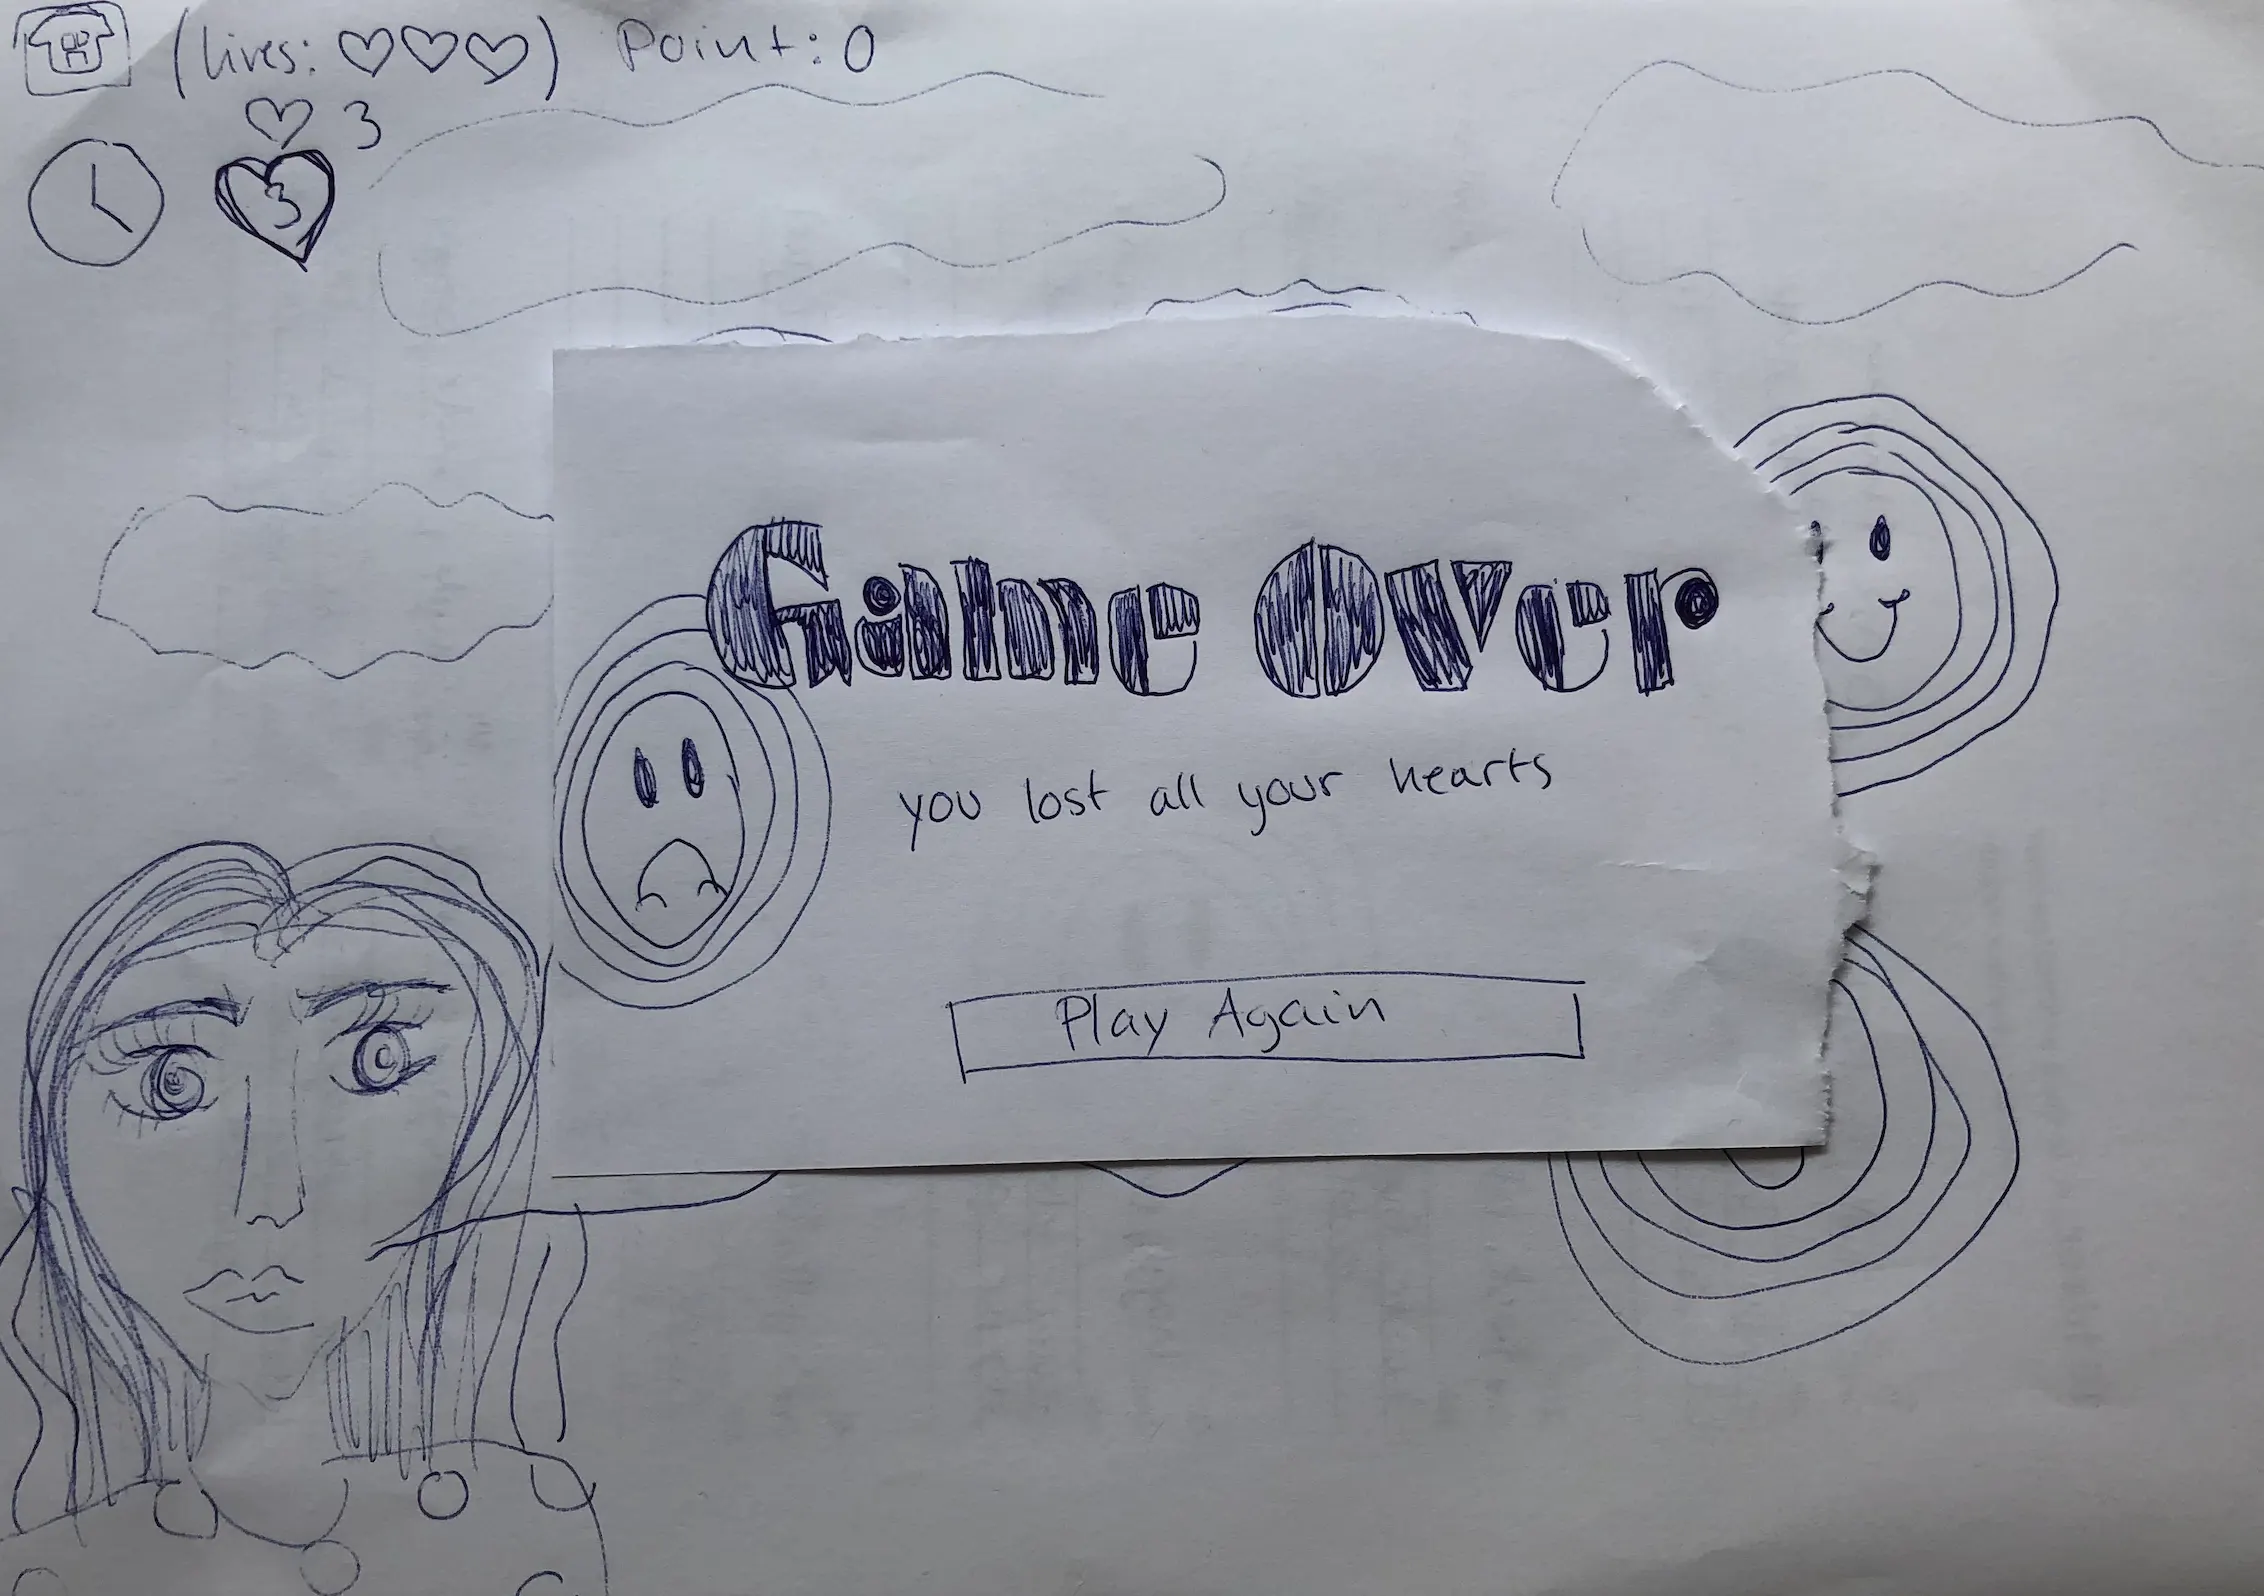 (lives: ♡♡♡) Point: 0
♡ 3
3
Game Over
you lost all your hearts
Play Again